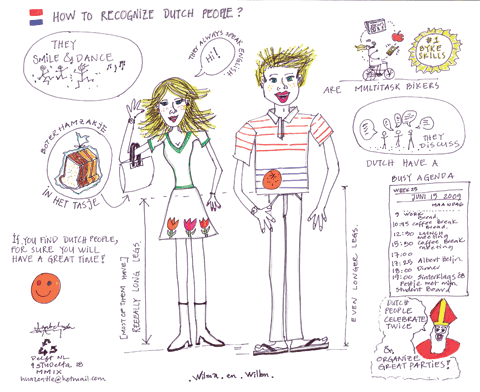 HOW TO RECOGNIZE DUTCH PEOPLE?
THEY
SMILE & DANCE
THEY ALWAYS SPEAK
ENGLISH
Hi!
#1
BYKE
SKILLS
ARE MULTITASK BIKERS
BOTERHAMZAKJE
IN HET TASJE
THEY
DISCUSS
DUTCH HAVE A
BUSY AGENDA
WEEK 25
JUNI 15 2009
MAANDAG
9 WORK
10:45 coffee Break
12:30 Lunch
meeting
15:30 coffee Break
meeting
17:00
17:25 Albert Heijn
18:00 Dinner
19:00 Sinterklaas
Feestje met mijn
Student Board
IF YOU FIND DUTCH PEOPLE,
FOR SURE YOU WILL
HAVE A GREAT TIME!
[MOST OF THEM HAVE]
REEEALLY LONG LEGS
EVEN LONGER LEGS
DUTCH
PEOPLE
CELEBRATE
TWICE
& ORGANIZE
GREAT PARTIES!
Delft NL
MMIX
.Wilma.en.Wilbm.